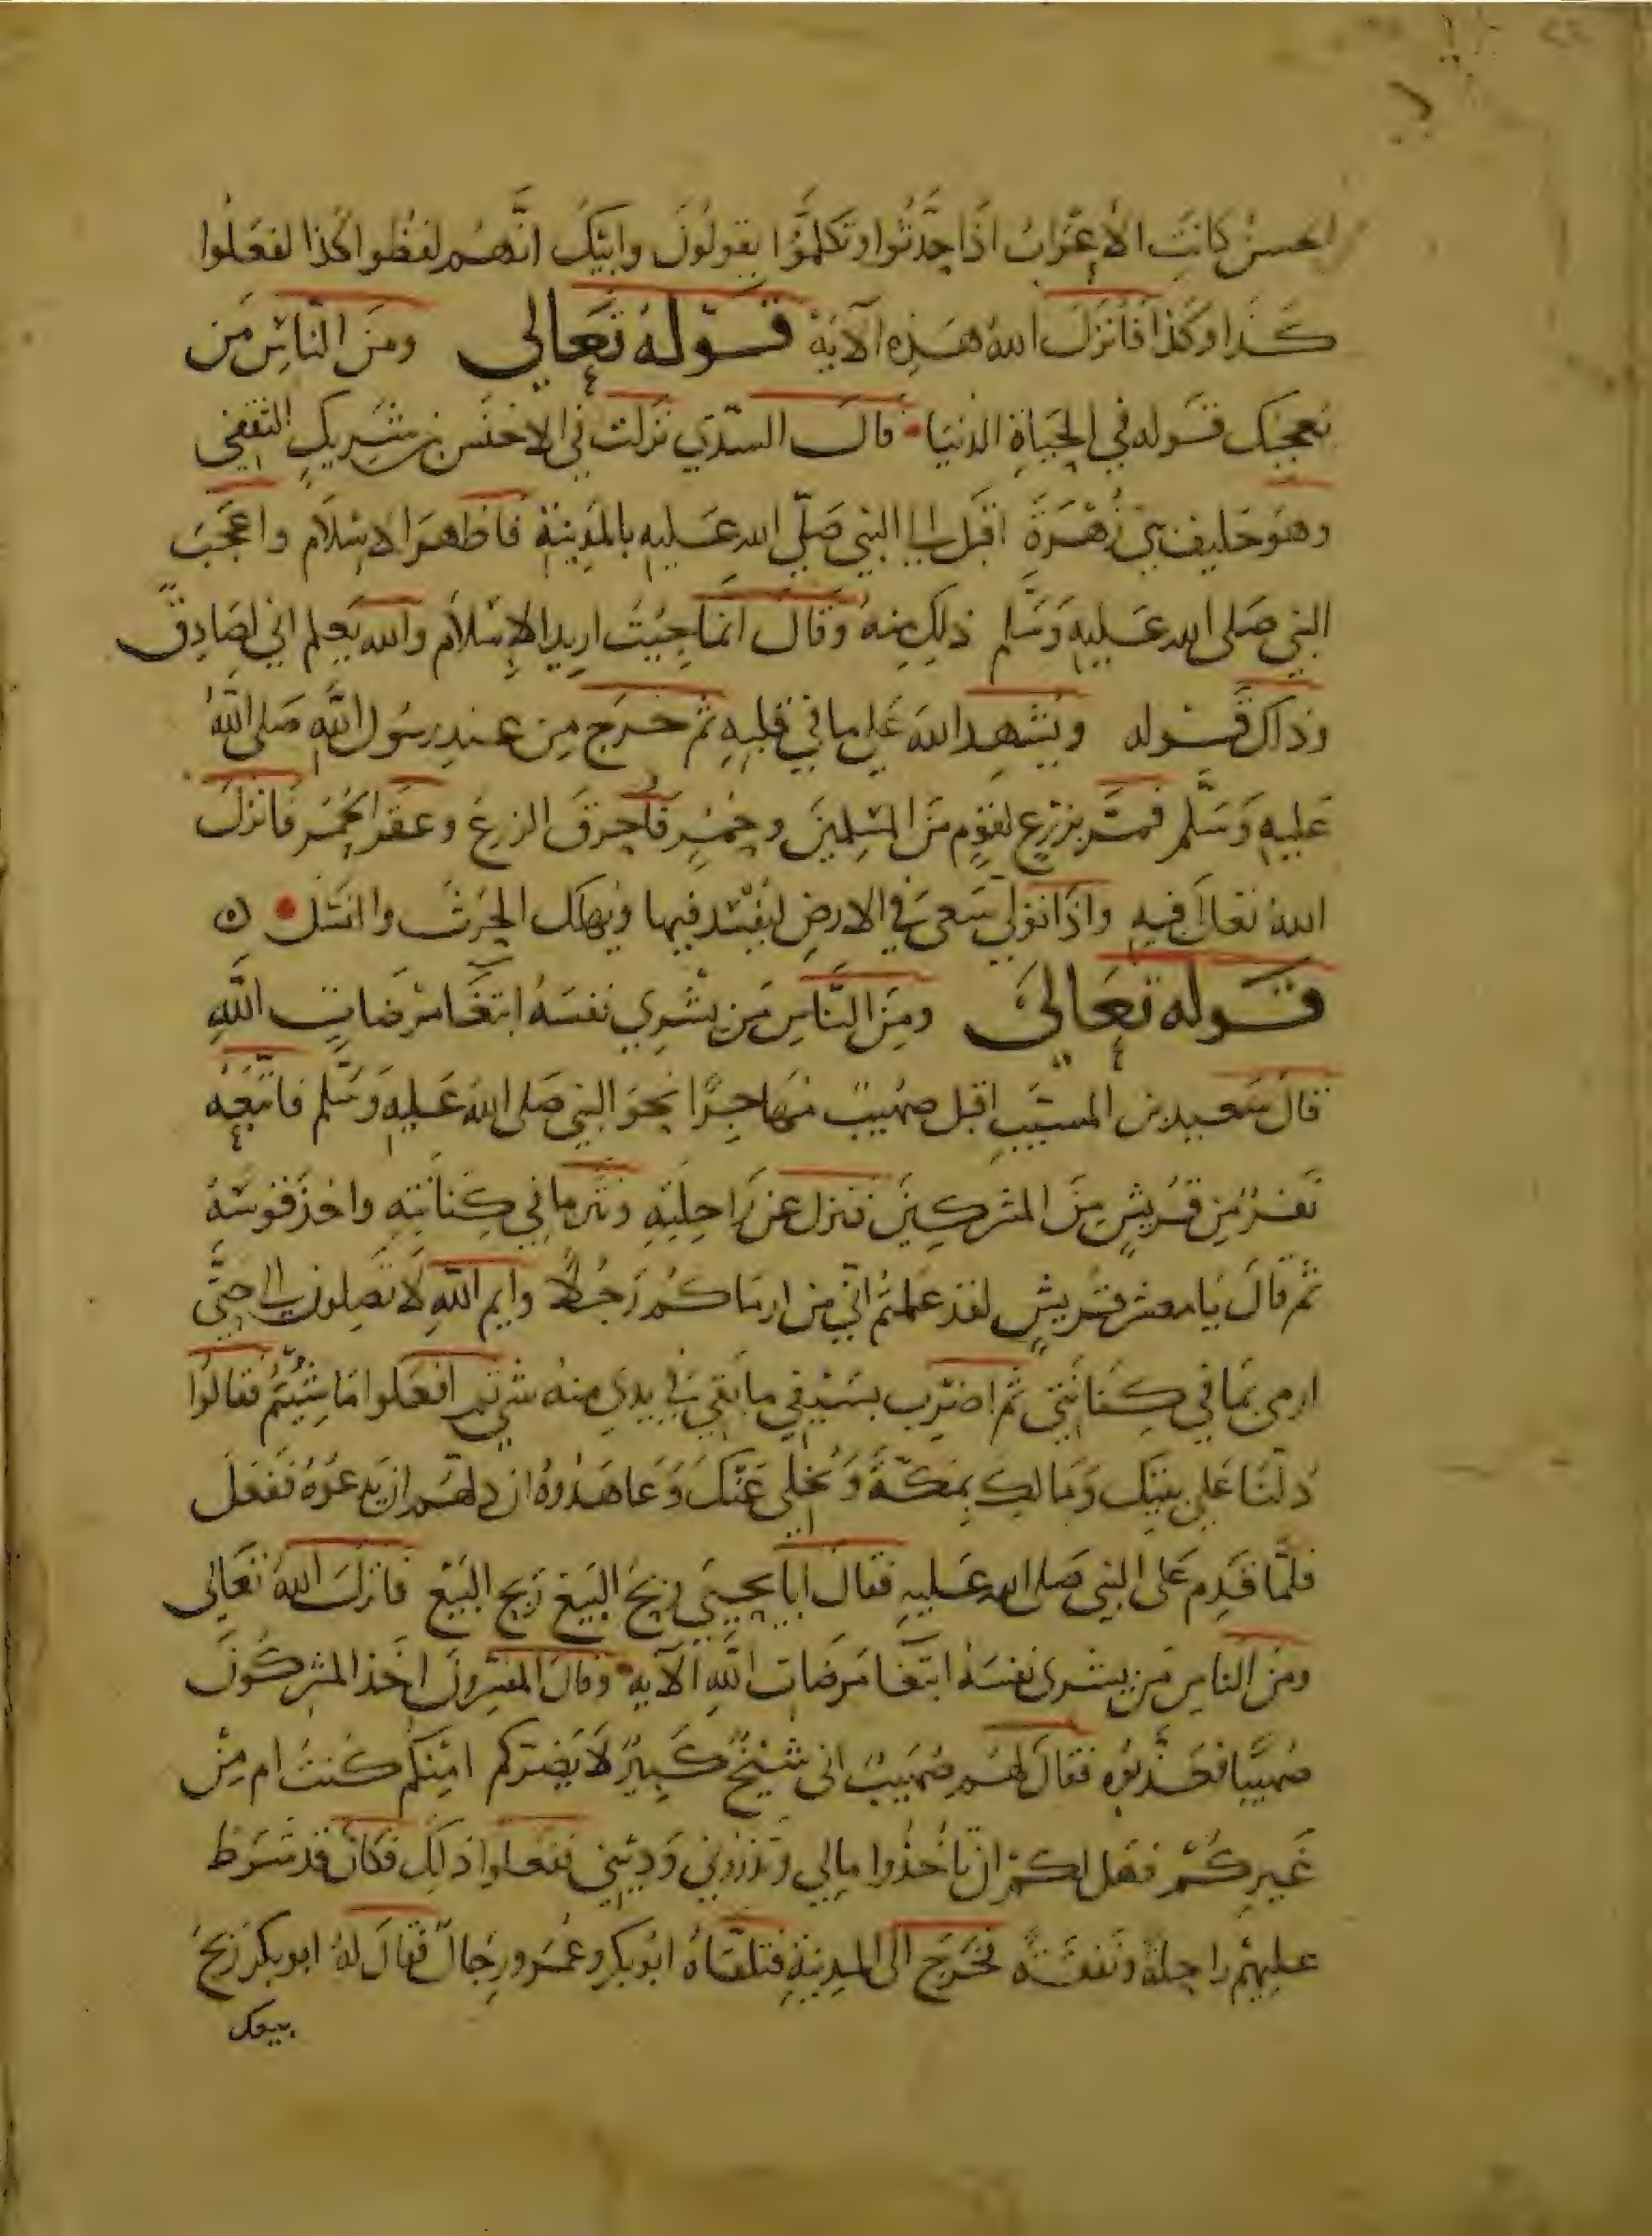 الحسن كانت الأعراب اذا حدّثوا وتكلموا يقولون وابيك انهم لفظوا كذا لفعلوا
كذا وكذا فأنزل الله هذه الآية قوله تعالى ومن الناس من
يعجبك قوله في الحياة الدنيا قال السدي نزلت في الاخنس بن شريك الثقفي
وهو حليف بني زهرة اقبل الى النبي صلى الله عليه بالمدينة فاظهر الاسلام واعجب
النبي صلى الله عليه وسلم ذلك منه وقال انما جيت اريد الاسلام والله يعلم اني لصادق
وذلك قوله ويشهد الله على ما في قلبه ثم خرج من عند رسول الله صلى الله
عليه وسلم فمر بزرع لقوم من المسلمين وحمر فاحرق الزرع وعقر الحمر فانزل
الله تعالى فيه واذا تولى سعى في الارض ليفسد فيها ويهلك الحرث والنسل ه
قوله تعالى ومن الناس من يشري نفسه ابتغا مرضات الله
قال سعيد بن المسيب اقبل صهيب مهاجرًا نحو النبي صلى الله عليه وسلم فاتبعه
نفر من قريش من المشركين فنزل عن راحلته ونثر ما في كنانته واخذ قوسه
ثم قال يا معشر قريش لقد علمتم اني من ارماكم رجلا وايم الله لا تصلون الى حتى
ارمى بما في كنانتي ثم اضرب بسيفي ما بقي في يدي منه شي ثم افعلوا ما شيتم فقالوا
دلنا على بيتك ومالك بمكة ونخلي عنك وعاهدوه ان دلهم ان يدعوه ففعل
فلما قدم على النبي صلى الله عليه فقال ابا يحيى ربح البيع ربح البيع فانزل الله تعالى
ومن الناس من يشرى نفسه ابتغا مرضات الله الآيه وقال المفسرون اخذ المشركون
صهيبا فعذبوه فقال لهم صهيب اني شيخ كبير لا يضركم امنكم كنت ام من
غيركم فهل لكم ان تاخذوا مالي وتذروني وديني ففعلوا ذلك فكان قد شرط
عليهم راحلة ونفقة فخرج الى المدينة فتلقاه ابو بكر وعمر ورجال فقال له ابو بكر ربح
بيعك